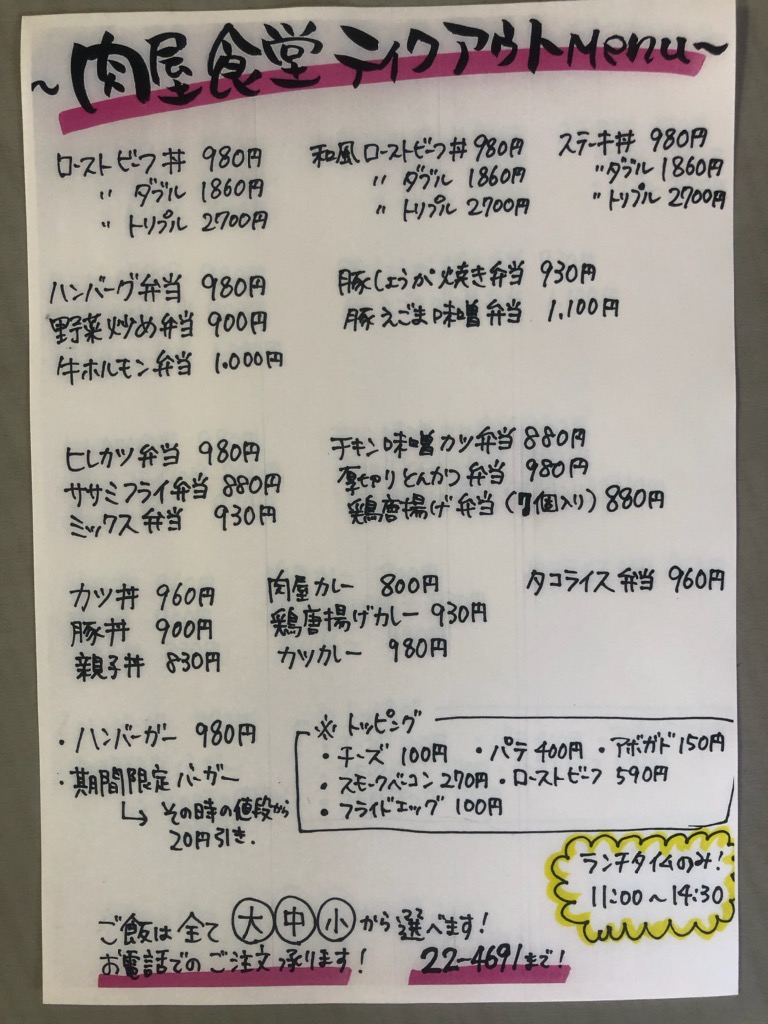 ~肉屋食堂 テイクアウトMenu~
ローストビーフ丼 980円
〃 ダブル 1860円
〃 トリプル 2700円
和風ローストビーフ丼 980円
〃 ダブル 1860円
〃 トリプル 2700円
ステーキ丼 980円
〃ダブル 1860円
〃トリプル 2700円
ハンバーグ弁当 980円
野菜炒め弁当 900円
牛ホルモン弁当 1.000円
豚しょうが焼き弁当 930円
豚えごま味噌弁当 1.100円
ヒレカツ弁当 980円
ササミフライ弁当 880円
ミックス弁当 930円
チキン味噌カツ弁当 880円
厚切りとんかつ弁当 980円
鶏唐揚げ弁当(7個入り) 880円
カツ丼 960円
豚丼 900円
親子丼 830円
肉屋カレー 800円
鶏唐揚げカレー 930円
カツカレー 980円
タコライス弁当 960円
・ハンバーガー 980円
・期間限定バーガー
↳ その時の値段から
20円引き.
※トッピング
・チーズ 100円 ・パテ 400円 ・アボガド 150円
・スモークベーコン 270円 ・ローストビーフ 590円
・フライドエッグ 100円
ランチタイムのみ!
11:00~14:30
ご飯は全て 大 中 小 から選べます!
お電話でのご注文承ります! 22-4691まで!